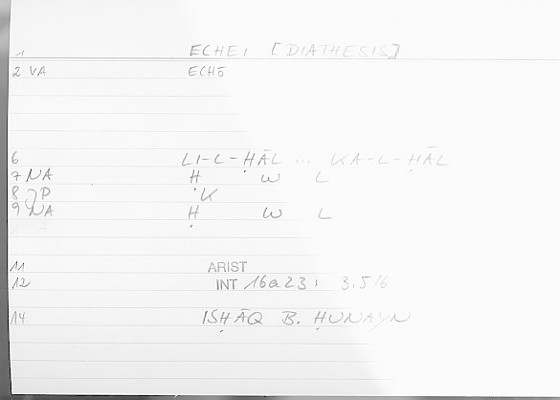 1 ECHEI [DIATHESIS]
2 VA ECHŌ
6 LI-L-ḤĀL ... KA-L-ḤĀL
7 NA Ḥ W L
8 P K
9 NA Ḥ W L
11 ARIST
12 INT 16a23: 3.5/6
14 ISḤĀQ B. ḤUNAYN